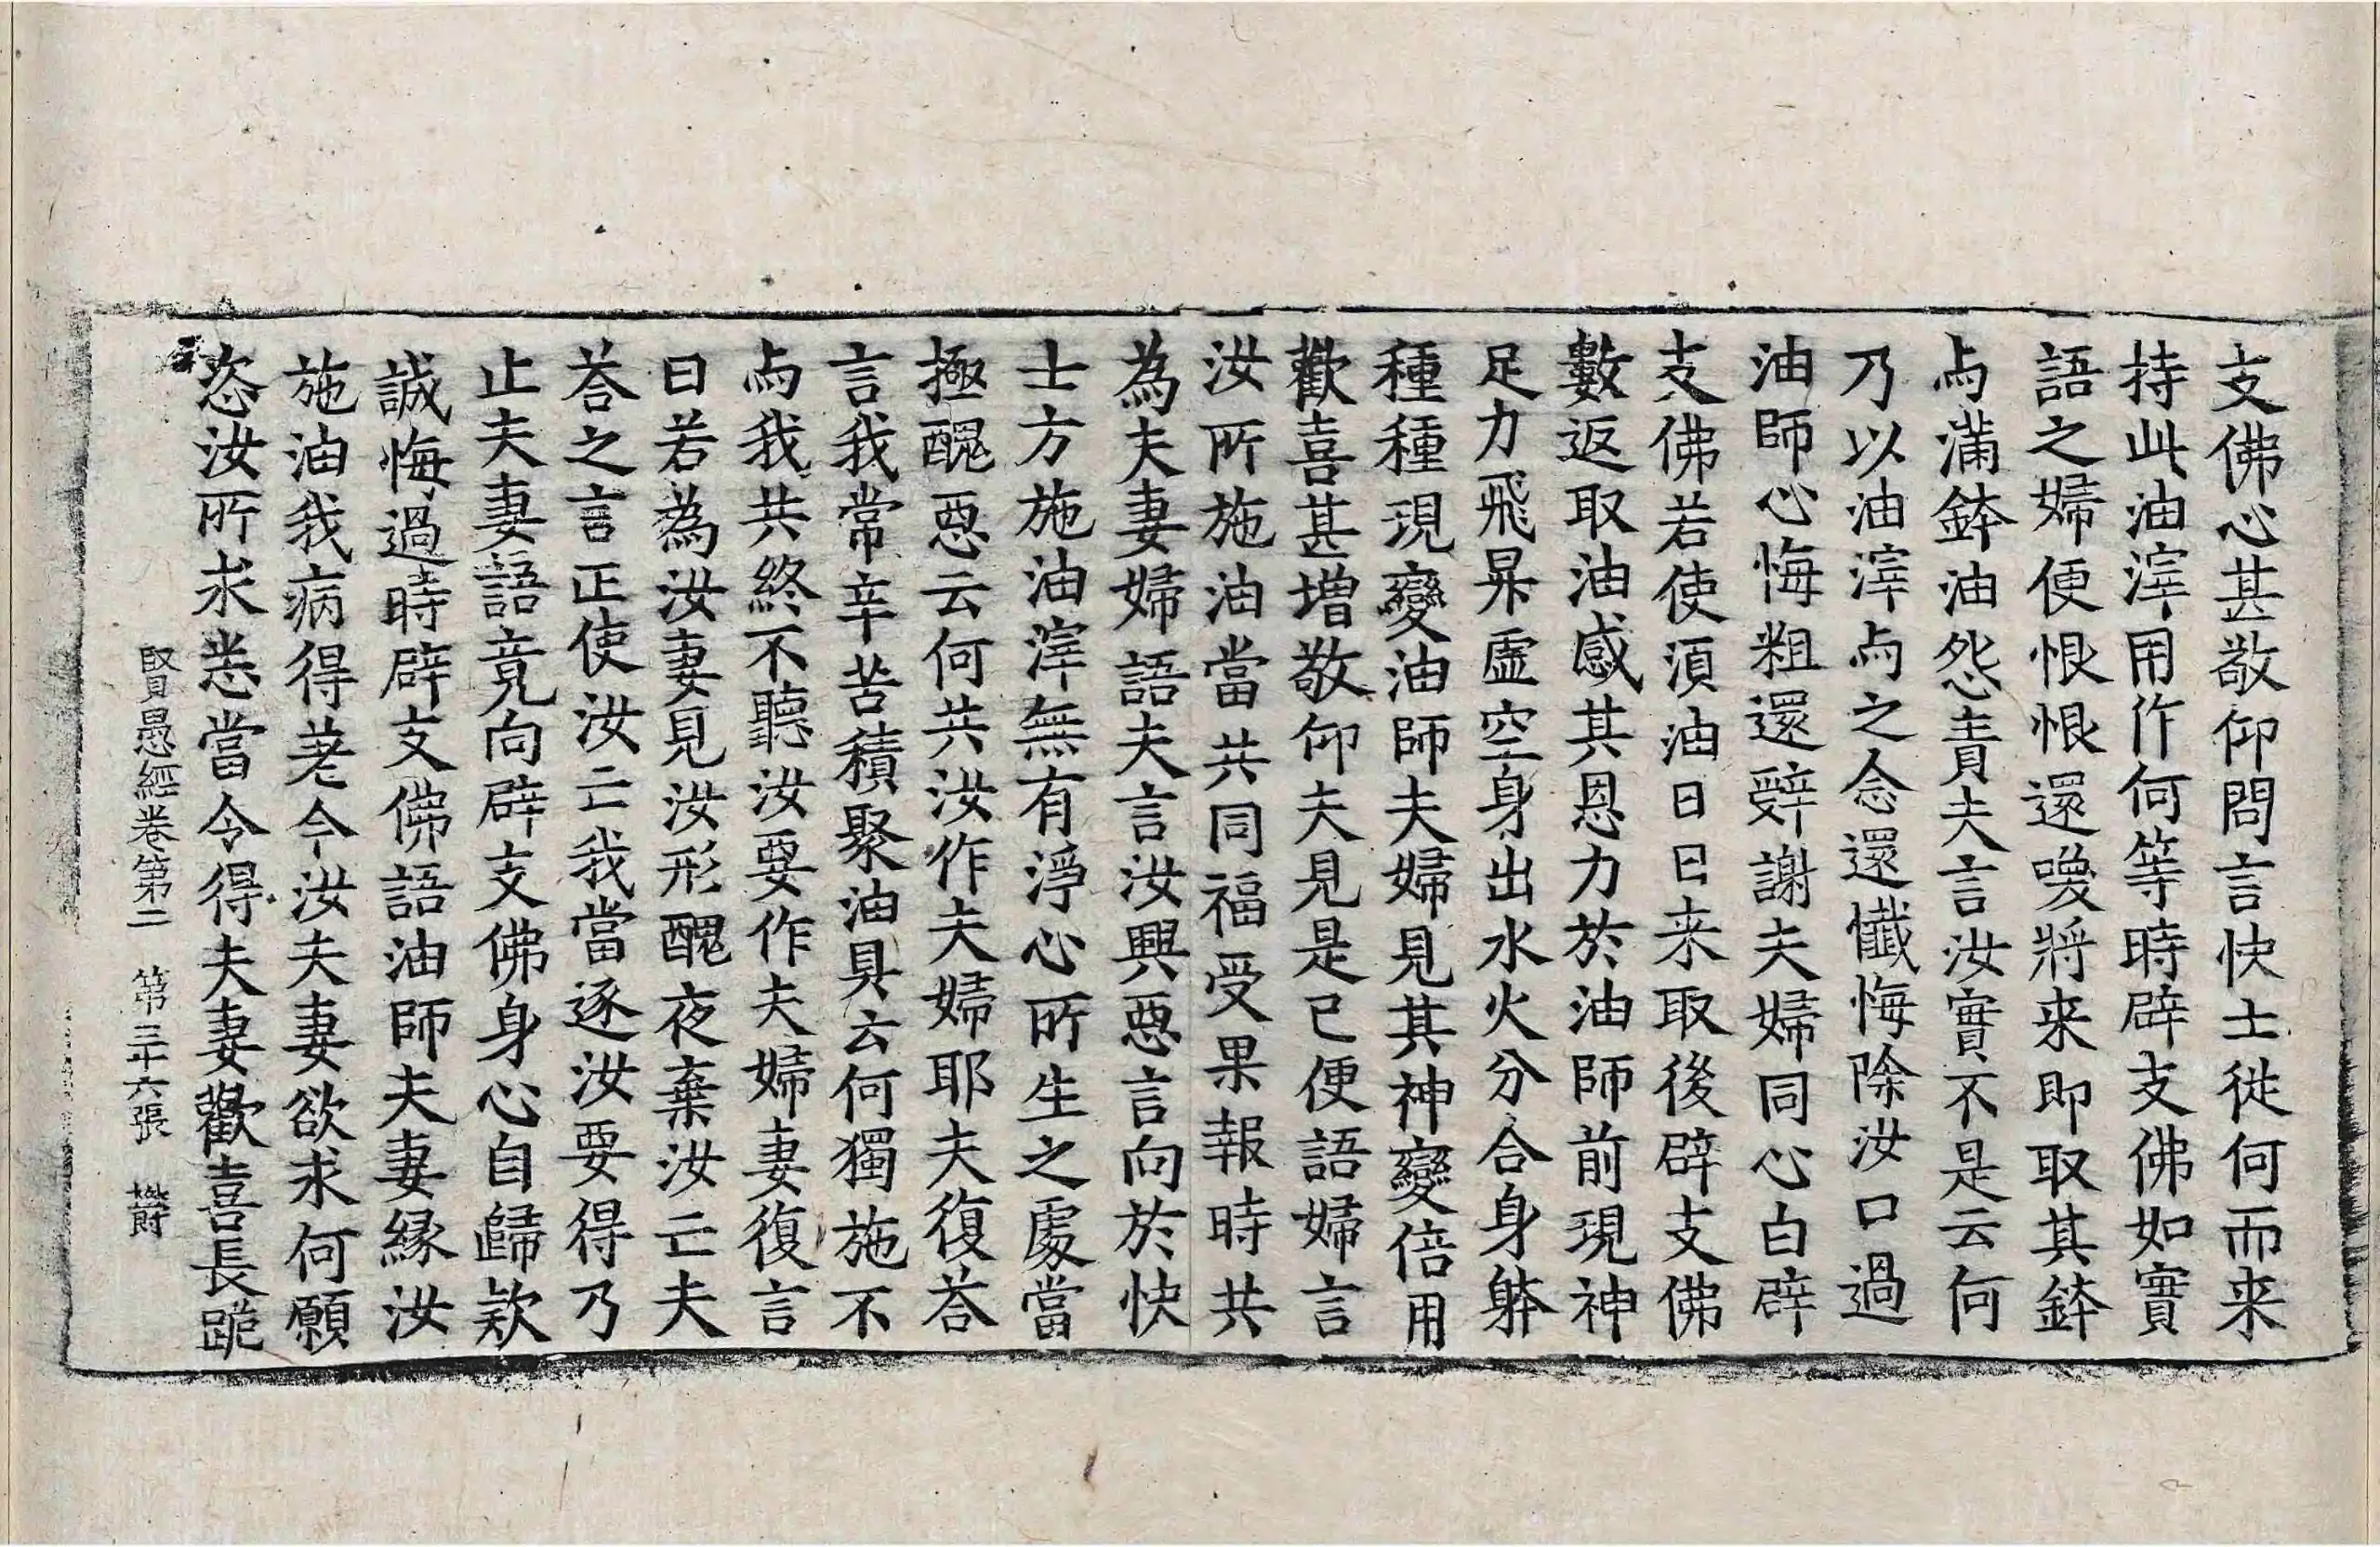 支佛心甚敬仰問言快士從何而来
持此油滓用作何等時辟支佛如實
語之婦便恨恨還喚將来即取其鉢
与滿鉢油怨責夫言汝實不是云何
乃以油滓与之念還懺悔除汝口過
油師心悔粗還辭謝夫婦同心白辟
支佛若使湏油日日来取後辟支佛
數返取油感其恩力於油師前現神
足力飛昇虛空身出水火分合身躰
種種現變油師夫婦見其神變倍用
歡喜甚增敬仰夫見是已便語婦言
汝所施油當共同福受果報時共
為夫妻婦語夫言汝興惡言向於快
士方施油滓無有淨心所生之處當
極醜惡云何共汝作夫婦耶夫復荅
言我常辛苦積聚油具云何獨施不
与我共終不聽汝要作夫婦妻復言
曰若為汝妻見汝形醜夜棄汝亡夫
荅之言正使汝亡我當逐汝要得乃
止夫妻語竟向辟支佛身心自歸欵
誠悔過時辟支佛語油師夫妻緣汝
施油我病得差今汝夫妻欲求何願
恣汝所求悉當令得夫妻歡喜長跪
賢愚經卷第二 第三十六張 欝